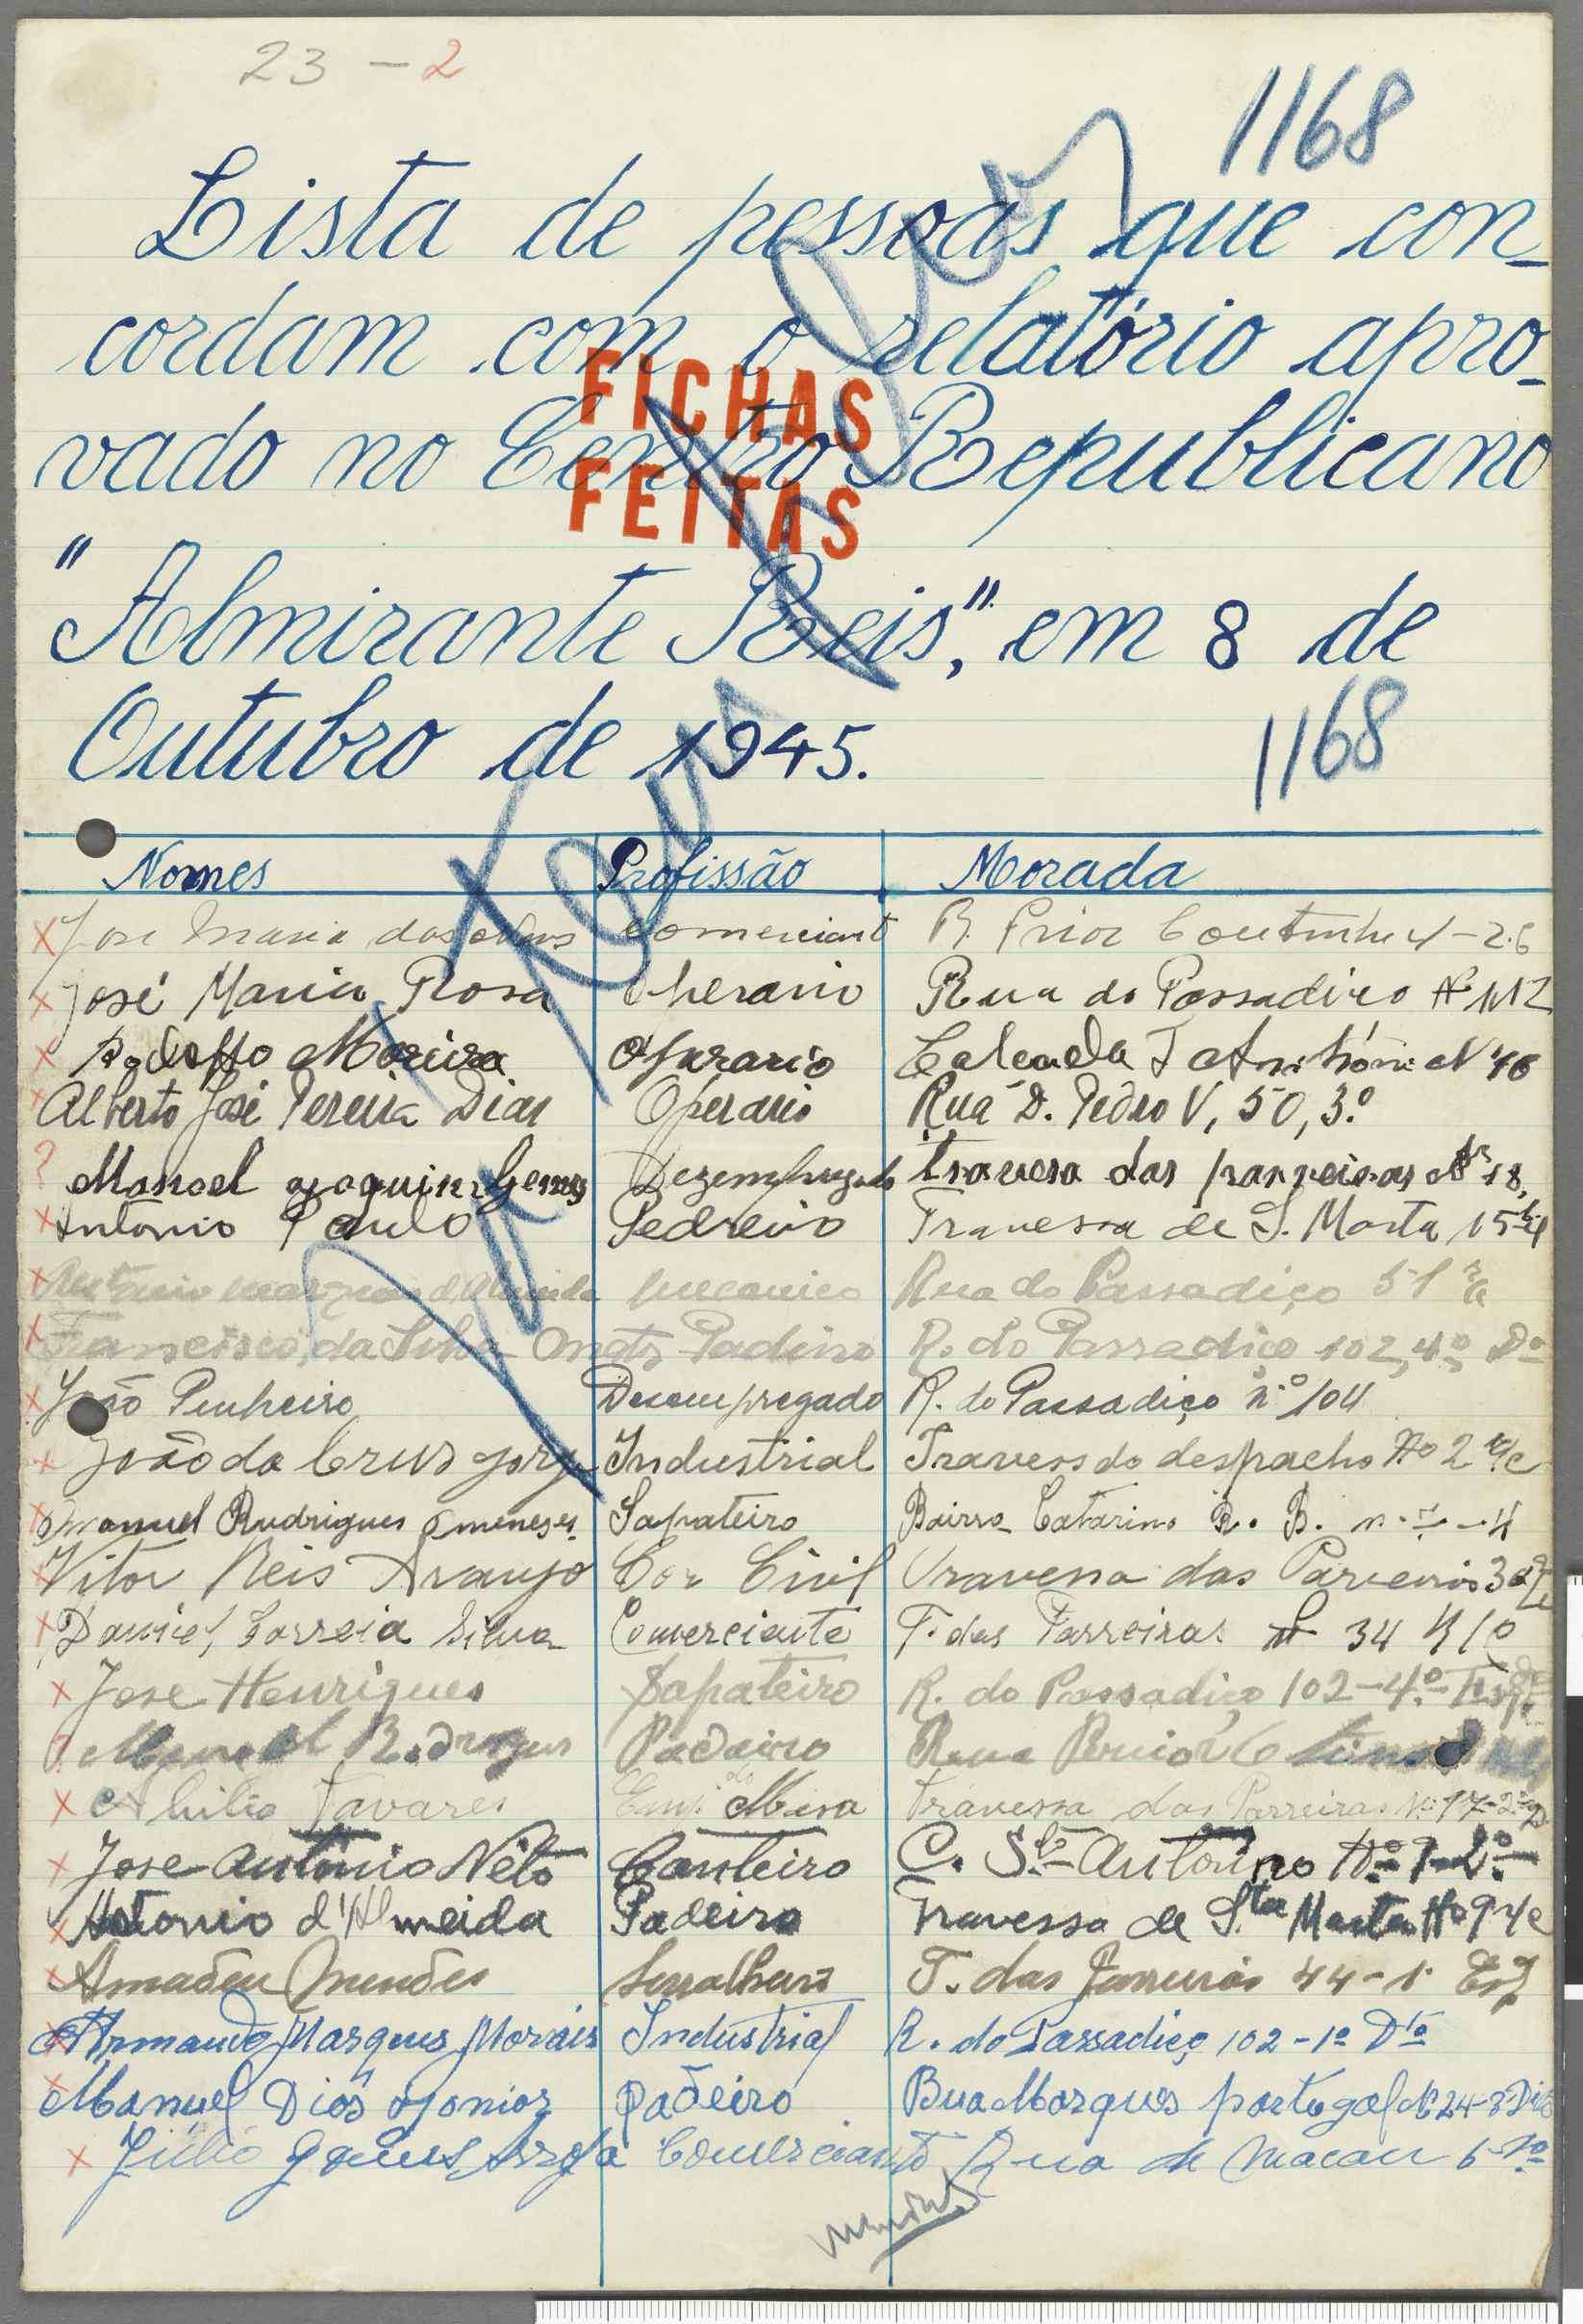 23 - 2
1168
Lista de pessoas que con-
cordam com o relatório apro-
vado no Centro Republicano
"Almirante Reis," em 8 de
Outubro de 1945.
FICHAS
FEITAS
1168
Nomes Profissão Morada
José Maria das Comerciant R. Prior Coutinho 4-2.
José Maria Rosa Operario Rua do Passadiço Nº 112
Rodolfo Moreira Oparario Calçada Nº
Alberto José Pereira Dias Operario Rua D. Pedro V, 50, 3.º
Manoel Joaquim Gomes Dezempregado travesa das parreiras Nº 18
António Paulo Pedreiro Travessa de S. Marta 15
António Marques d'Almeida Mecanico Rua do Passadiço 51
Francisco da Silva Padeiro R. do Passadiço 102, 4º, Dº
João Pinheiro Desempregado R. do Passadiço n.º 104
João da Crus Jorge Industrial Travess do despacho Nº 2 r/c
Manuel Rudrigues Meneses Sapateiro Bairro Catarino R. B. n.
Vitor Reis Araujo Con Civil Travessa das Parreiras
Daniel Correia Silva Comerciante T. das Parreiras Nº 34 R/C
José Henriques Sapateiro R. do Passadiço 102-4.º
Manuel Rodrigues Padairo Rua
Abilio Tavares Emp. do Mesa Travessa das Parreiras Nº 17-2º D
José António Néto Canteiro C. Stº António Nº 9-2º
Antonio d'Almeida Padeiro Travessa de S.ta Marta Nº 9
Amadeu Mendes Serralheiro T. das Parreiras 44-1º Esq
Armando Marques Morais Industrial R. do Passadiço 102-1º Dto
Manuel Dios Jonior Padeiro Rua Marques portugal Nº 24-3
Júlio Gomes Comerciante Rua de Macau 6